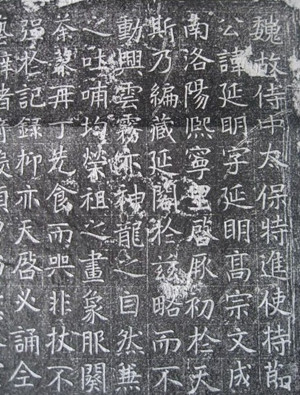 魏故侍中太保特進使持節
公諱延明字延明高宗文成
南洛陽熙寧里啓厥初於天
斯乃編藏延閣於茲略而不
動興雲霧亦神龍之自然兼
之吐哺均榮祖之畫象服闋
荼蓼再丁食而哭非杖不
强於記錄抑亦天啓必誦全